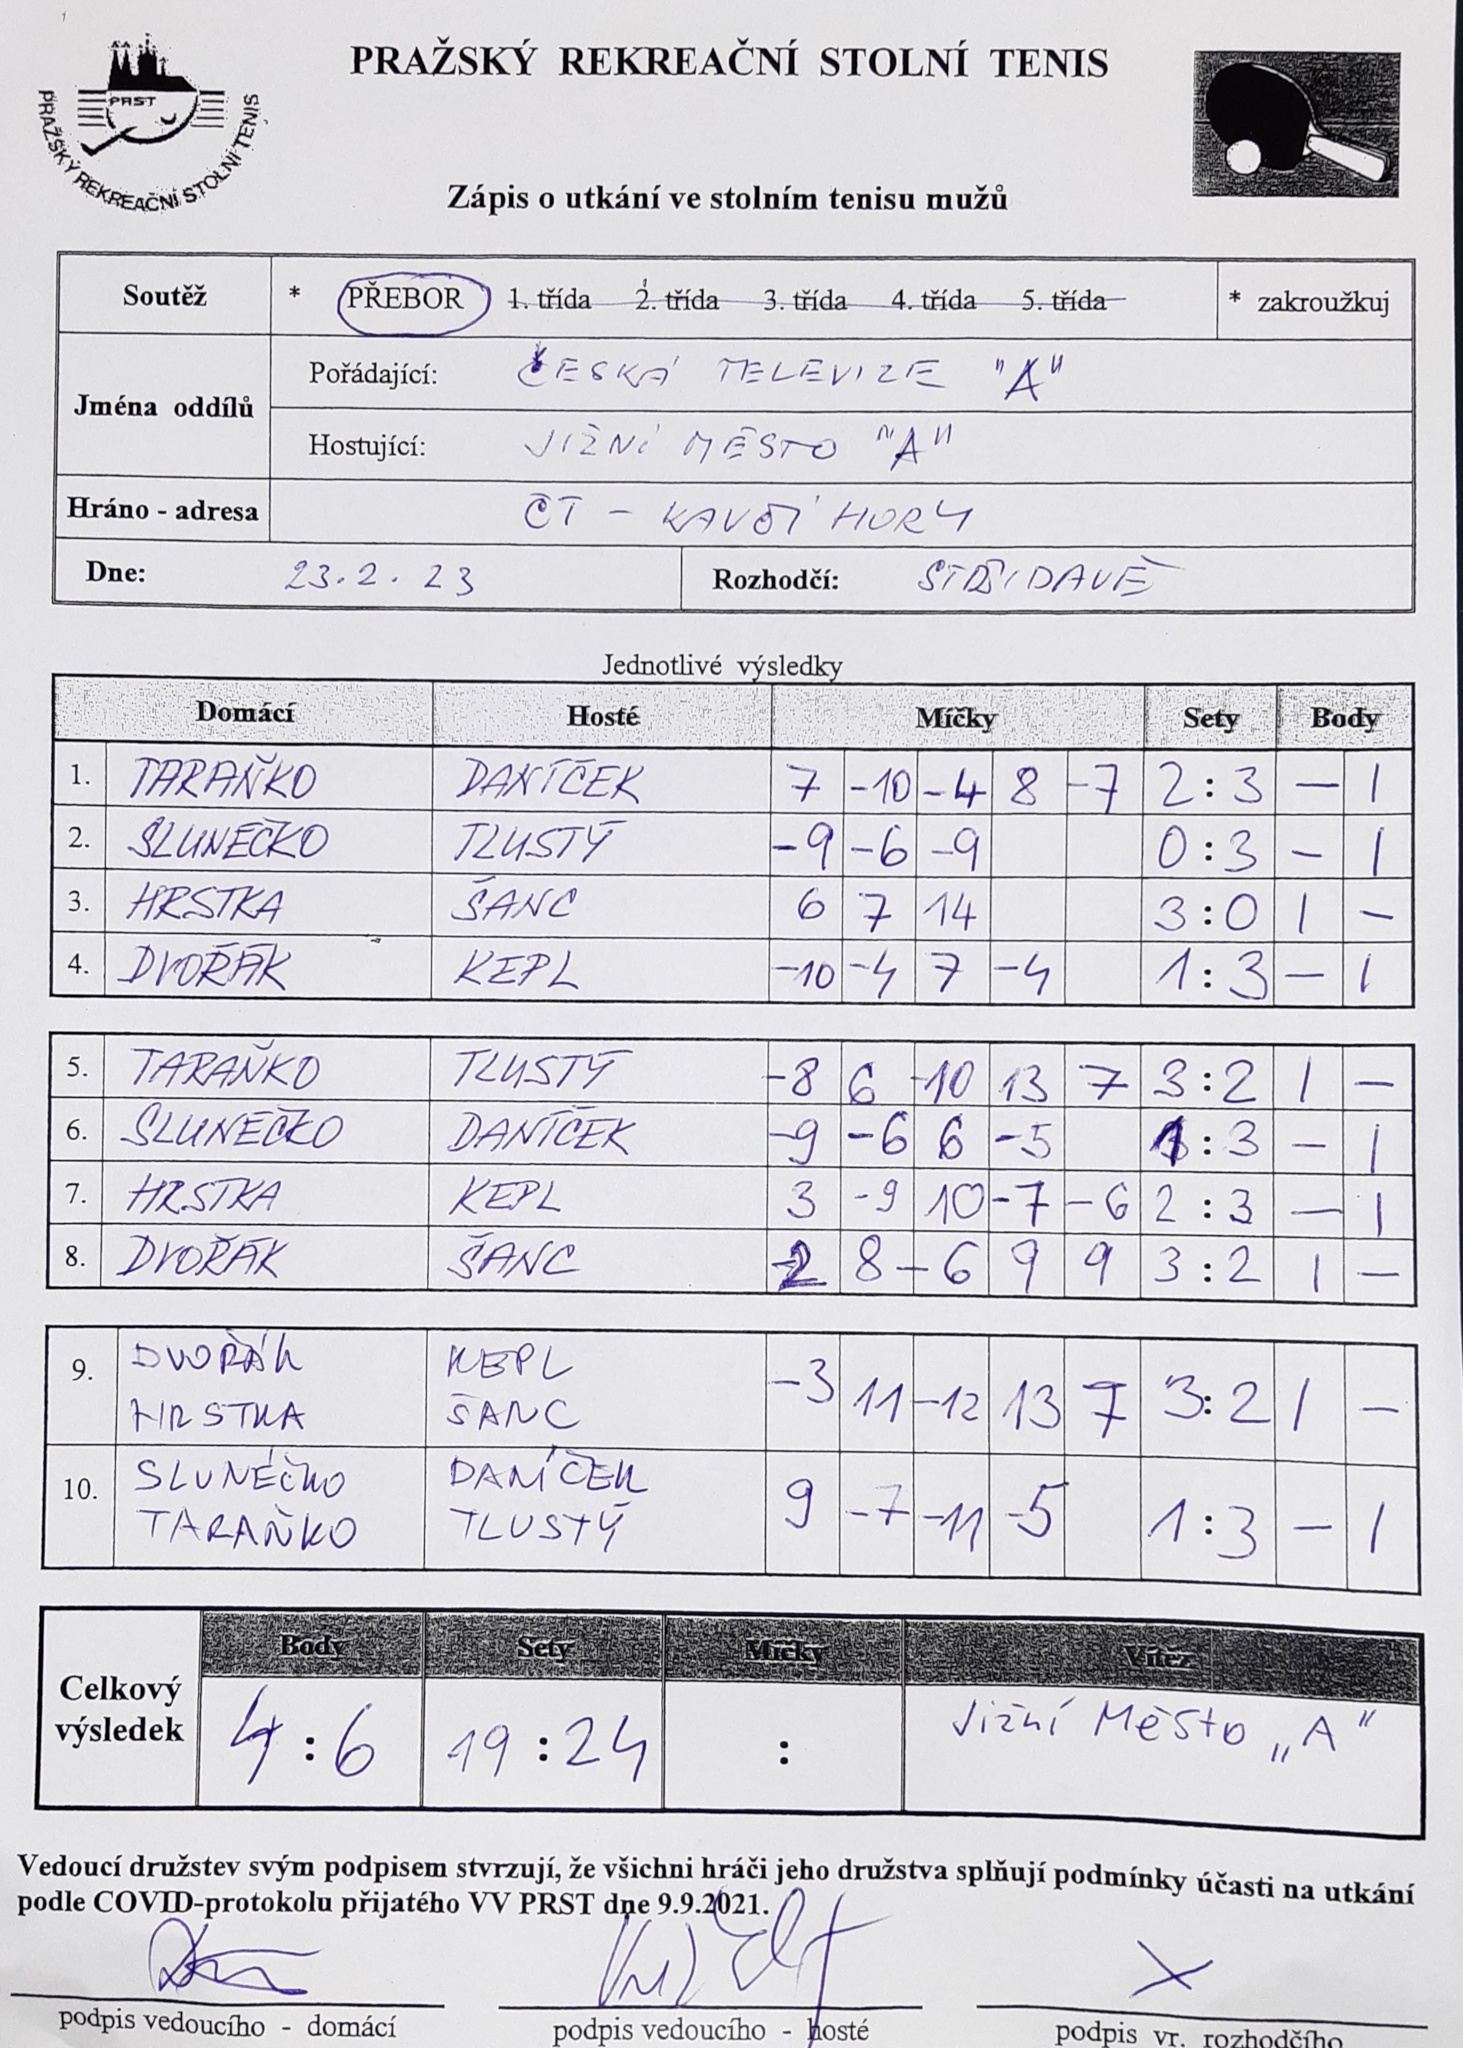 PRAŽSKÝ REKREAČNÍ STOLNÍ TENIS
PRST
PRAŽSKÝ REKREAČNÍ STOLNÍ TENIS
Zápis o utkání ve stolním tenisu mužů
Soutěž * PŘEBOR 1. třída 2. třída 3. třída 4. třída 5. třída * zakroužkuj
Jména oddílů
Pořádající: ČESKÁ TELEVIZE "A"
Hostující: JIŽNÍ MĚSTO "A"
Hráno - adresa ČT - KAVČÍ HORY
Dne: 23.2.23 Rozhodčí: STŘÍDAVĚ
Jednotlivé výsledky
Domácí Hosté Míčky Sety Body
1. TARAŇKO DANÍČEK 7 -10 -4 8 -7 2:3 - 1
2. SLUNÉČKO TLUSTÝ -9 -6 -9 0:3 - 1
3. HRSTKA ŠANC 6 7 14 3:0 1 -
4. DVOŘÁK KEPL -10 -4 7 -4 1:3 - 1
5. TARAŇKO TLUSTÝ -8 6 -10 13 7 3:2 1 -
6. SLUNÉČKO DANÍČEK -9 -6 6 -5 1:3 - 1
7. HRSTKA KEPL 3 -9 10 -7 -6 2:3 - 1
8. DVOŘÁK ŠANC -2 8 -6 9 9 3:2 1 -
9. DVOŘÁK KEPL
HRSTKA ŠANC -3 11 -12 13 7 3:2 1 -
10. SLUNÉČKO DANÍČEK
TARAŇKO TLUSTÝ 9 -7 -11 -5 1:3 - 1
Body Sety Míčky Vítěz
Celkový výsledek 4:6 19:24 : Jižní Město „A"
Vedoucí družstev svým podpisem stvrzují, že všichni hráči jeho družstva splňují podmínky účasti na utkání
podle COVID-protokolu přijatého VV PRST dne 9.9.2021.
podpis vedoucího - domácí podpis vedoucího - hosté podpis vr. rozhodčího